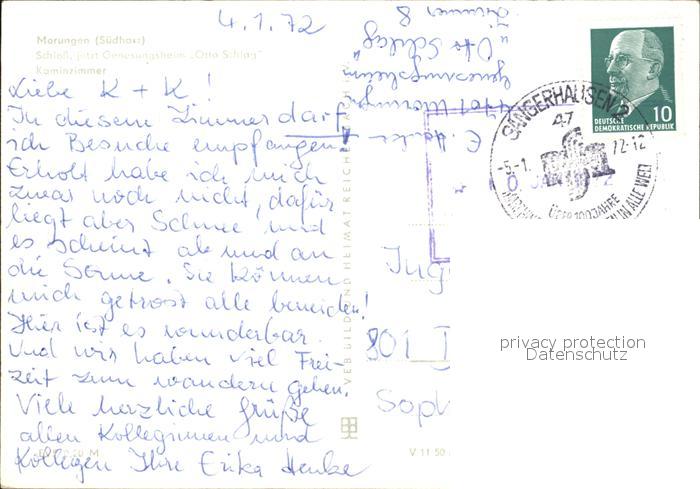 4.1.72
Morungen (Südharz)
Schloß, jetzt Genesungsheim „Otto Schlag"
Kaminzimmer
Liebe K + K!
In diesem Zimmer darf
ich Besuche empfangen!
Erholt habe ich mich
zwar noch nicht, dafür
liegt aber Schnee und
es scheint ab und an
die Sonne. Sie können
mich getrost alle beneiden!
Hier ist es wunderbar.
Und wir haben viel Frei-
zeit zum wandern gehen.
Viele herzliche Grüße
allen Kolleginnen und
Kollegen Ihre Erika Henke
VEB BILD UND HEIMAT REICHENBACH
V 11 50
E. Henke
4701 Morungen
Genesungsheim
"Otto Schlag"
Zimmer 8
10
DEUTSCHE
DEMOKRATISCHE REPUBLIK
SANGERHAUSEN 2
47
-5.-1.
72-12
ÜBER 100 JAHRE
IN ALLE WELT
Ing
801
Soph
privacy protection
Datenschutz